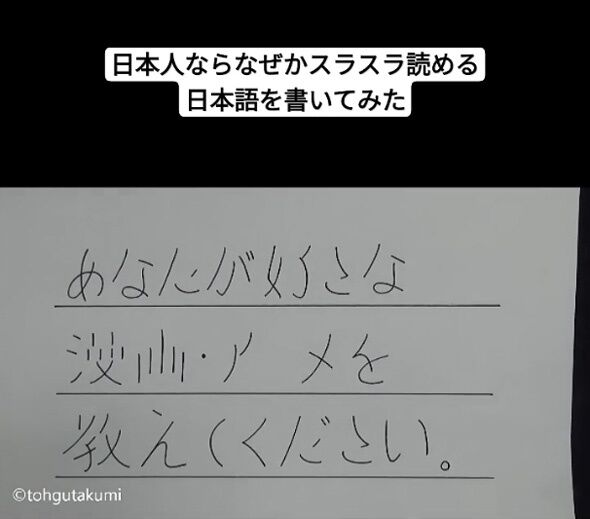 日本人ならなぜかスラスラ読める
日本語を書いてみた
あなたが好きな
漫画・ア メを
教えてください。
©tohgutakumi